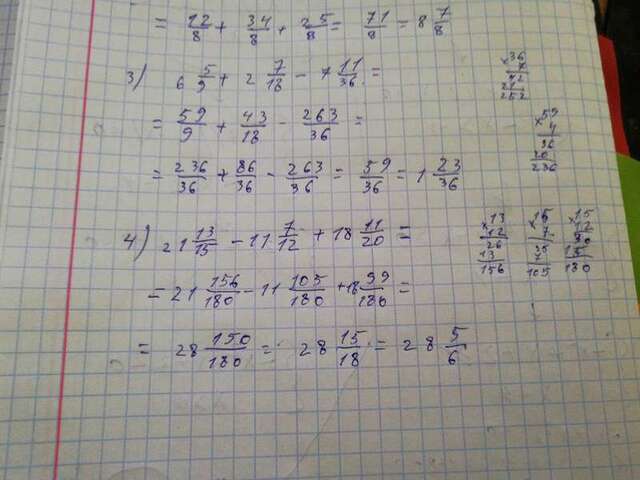 = 12/8 + 34/8 + 25/8 = 71/8 = 8 7/8
3) 6 5/9 + 2 7/18 - 7 11/36 =
= 59/9 + 43/18 - 263/36 =
= 236/36 + 86/36 - 263/36 = 59/36 = 1 23/36
×36
7
42
21
252
×59
4
36
20
236
4) 21 13/15 - 11 7/12 + 18 11/20 =
= 21 156/180 - 11 105/180 + 18 99/180 =
= 28 150/180 = 28 15/18 = 28 5/6
×13
12
26
13
156
×15
7
35
7
105
×15
12
30
15
180